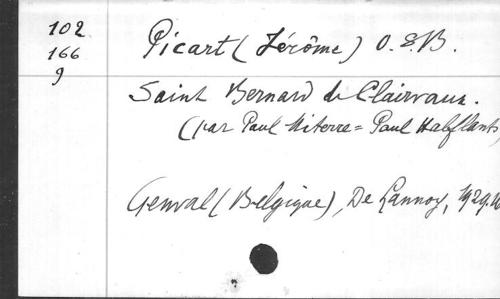 102
166
9
Picart (Jérôme) O.S.B.
Saint Bernard de Clairvaux.
(par Paul Miterre = Paul Halflants,
Genval (Belgique), De Lannoy, 1929.